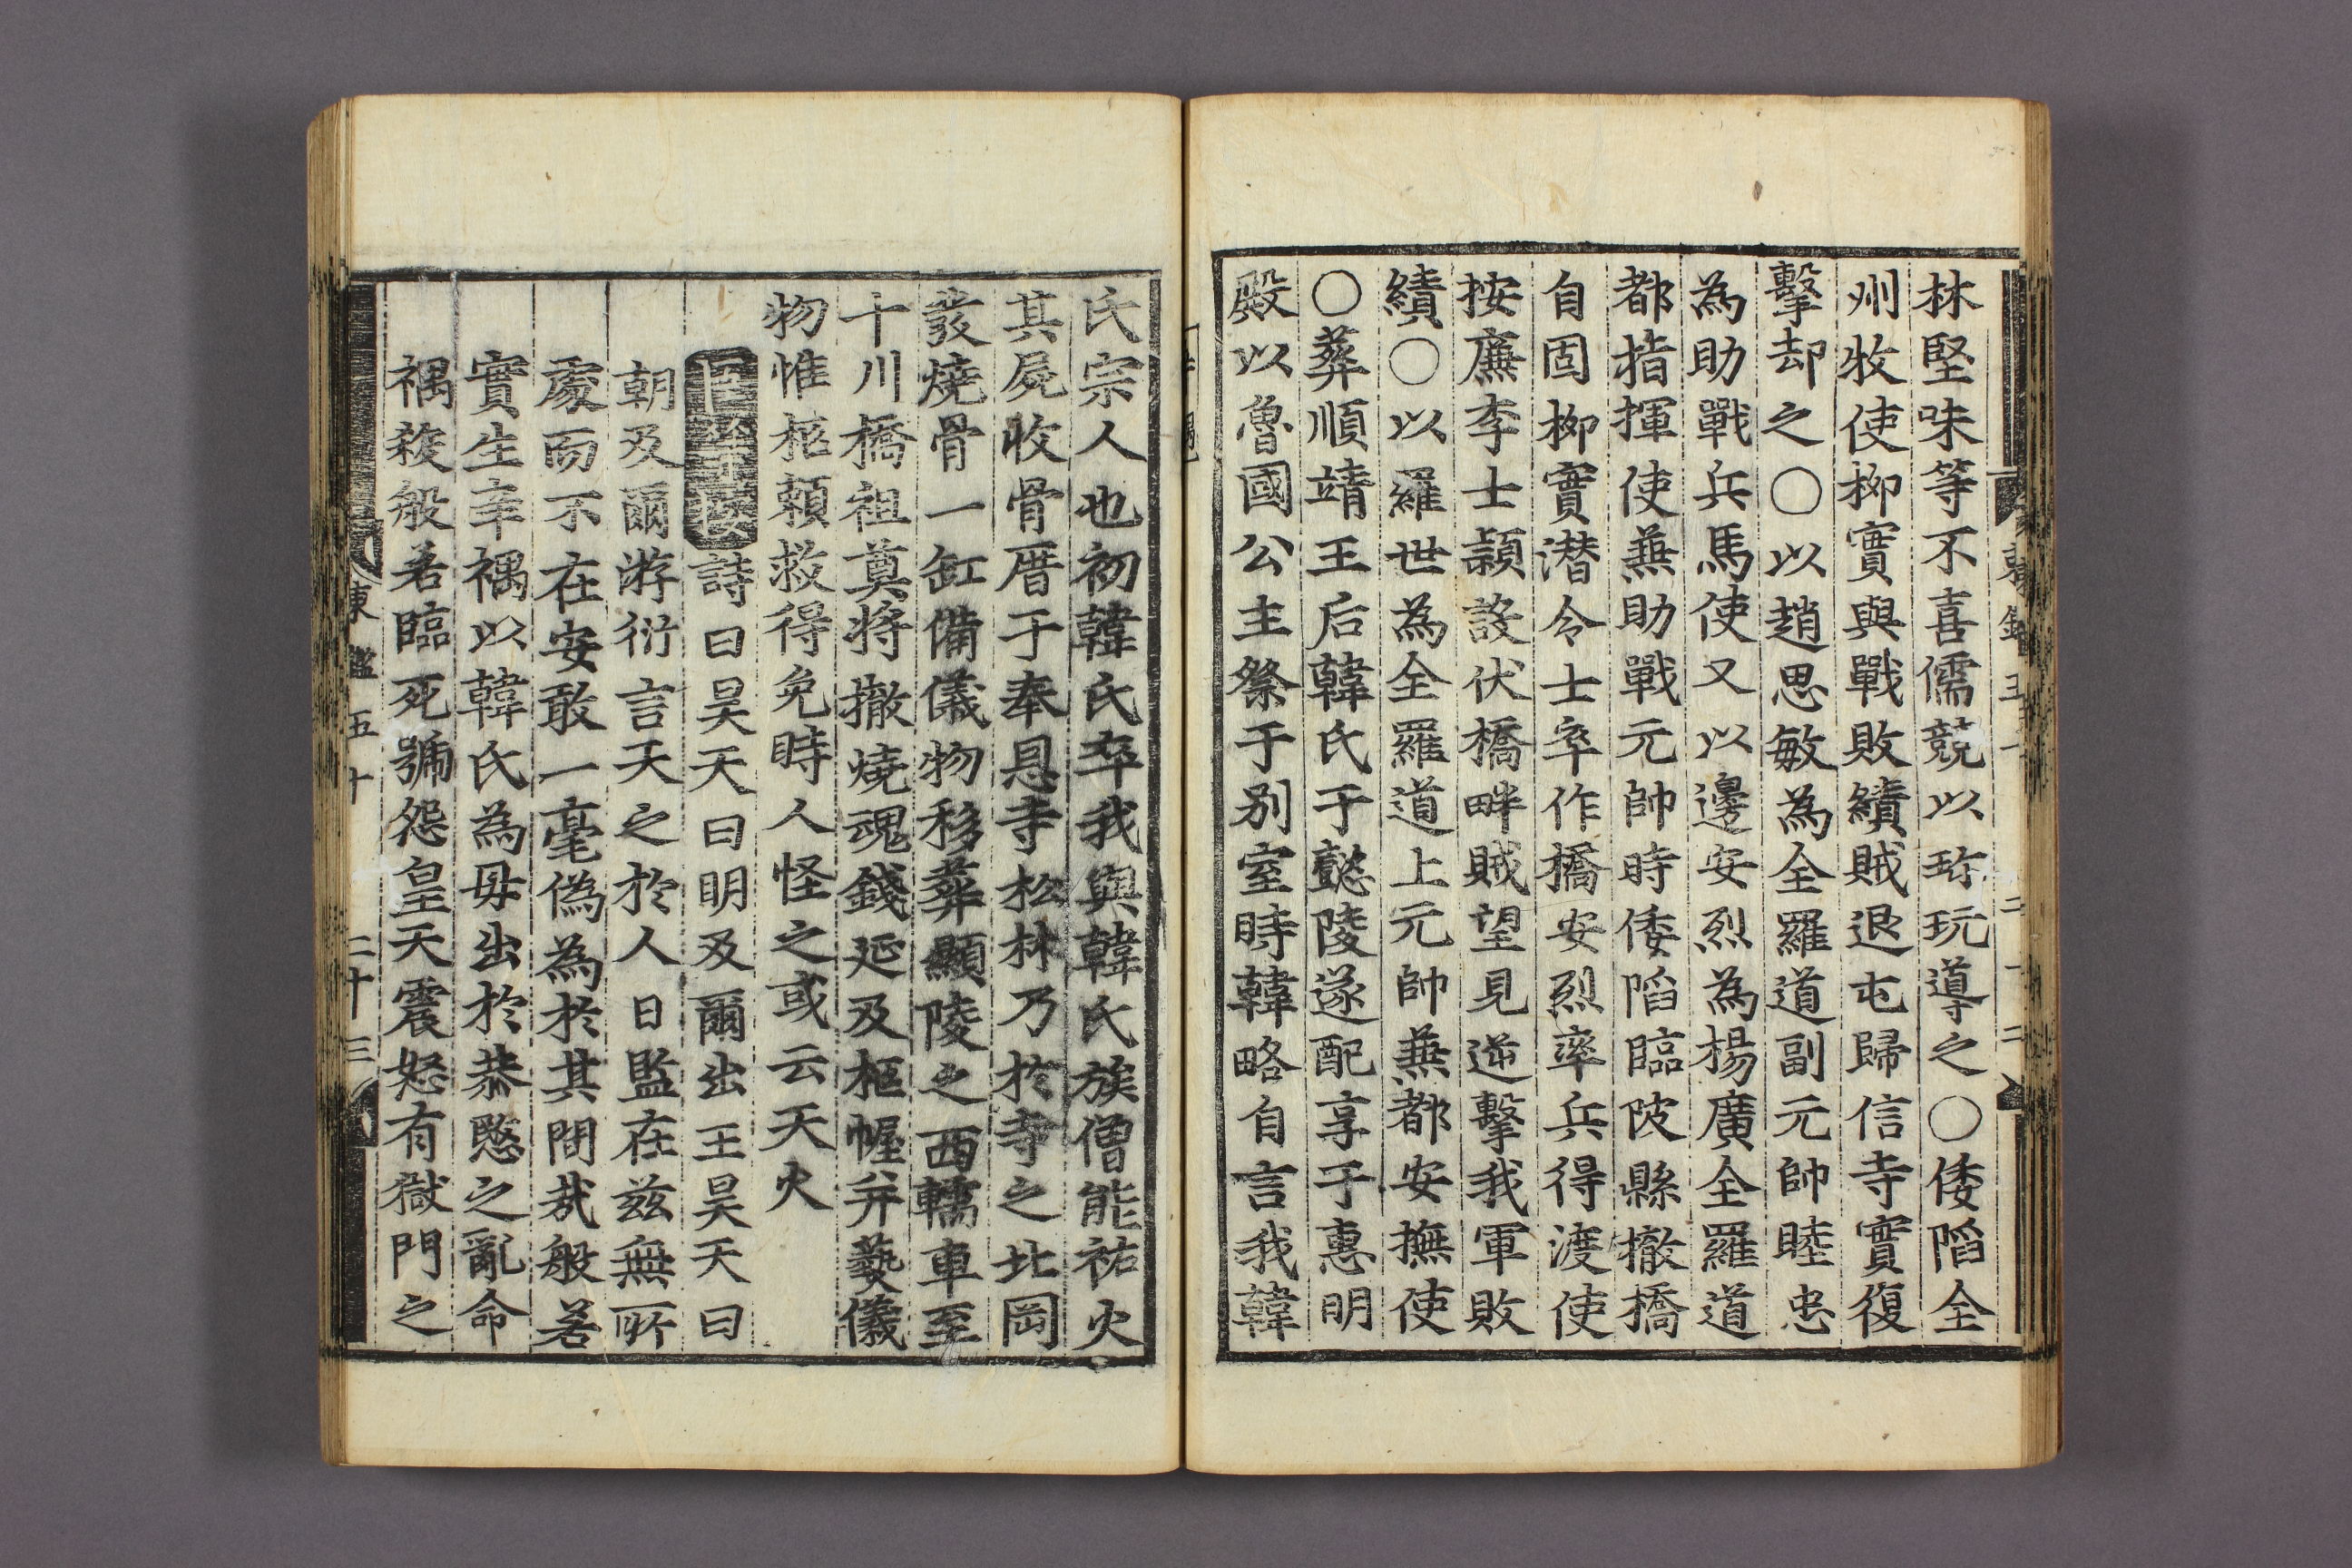 林堅味等不喜儒競以珎玩導之○倭陷全
州牧使柳實與戰敗績賊退屯歸信寺實復
擊却之○以趙思敏為全羅道副元帥睦忠
為助戰兵馬使又以邊安烈為楊廣全羅道
都指揮使兼助戰元帥時倭陷臨陂縣撤橋
自固柳實潜令士卒作橋安烈率兵得渡使
按廉李士頴設伏橋畔賊望見逆擊我軍敗
績○以羅世為全羅道上元帥兼都安撫使
○葬順靖王后韓氏于懿陵遂配享于惠明
殿以魯國公主祭于别室時韓略自言我韓
氏宗人也初韓氏卒我與韓氏族僧能祐火
其屍收骨厝于奉恩寺松林乃於寺之北岡
發燒骨一缸備儀物移葬顯陵之西轜車至
十川橋祖奠將撤燒魂錢延及柩幄并爇儀
物惟柩頼救得免時人怪之或云天火
詩曰昊天曰明及爾出王昊天曰
朝及爾游衍言天之於人日監在兹無所
處而不在安敢一毫偽為於其間哉般若
實生辛禑以韓氏為母出於恭愍之亂命
禑殺般若臨死號怨皇天震怒有獄門之
東鑑五十 二十三